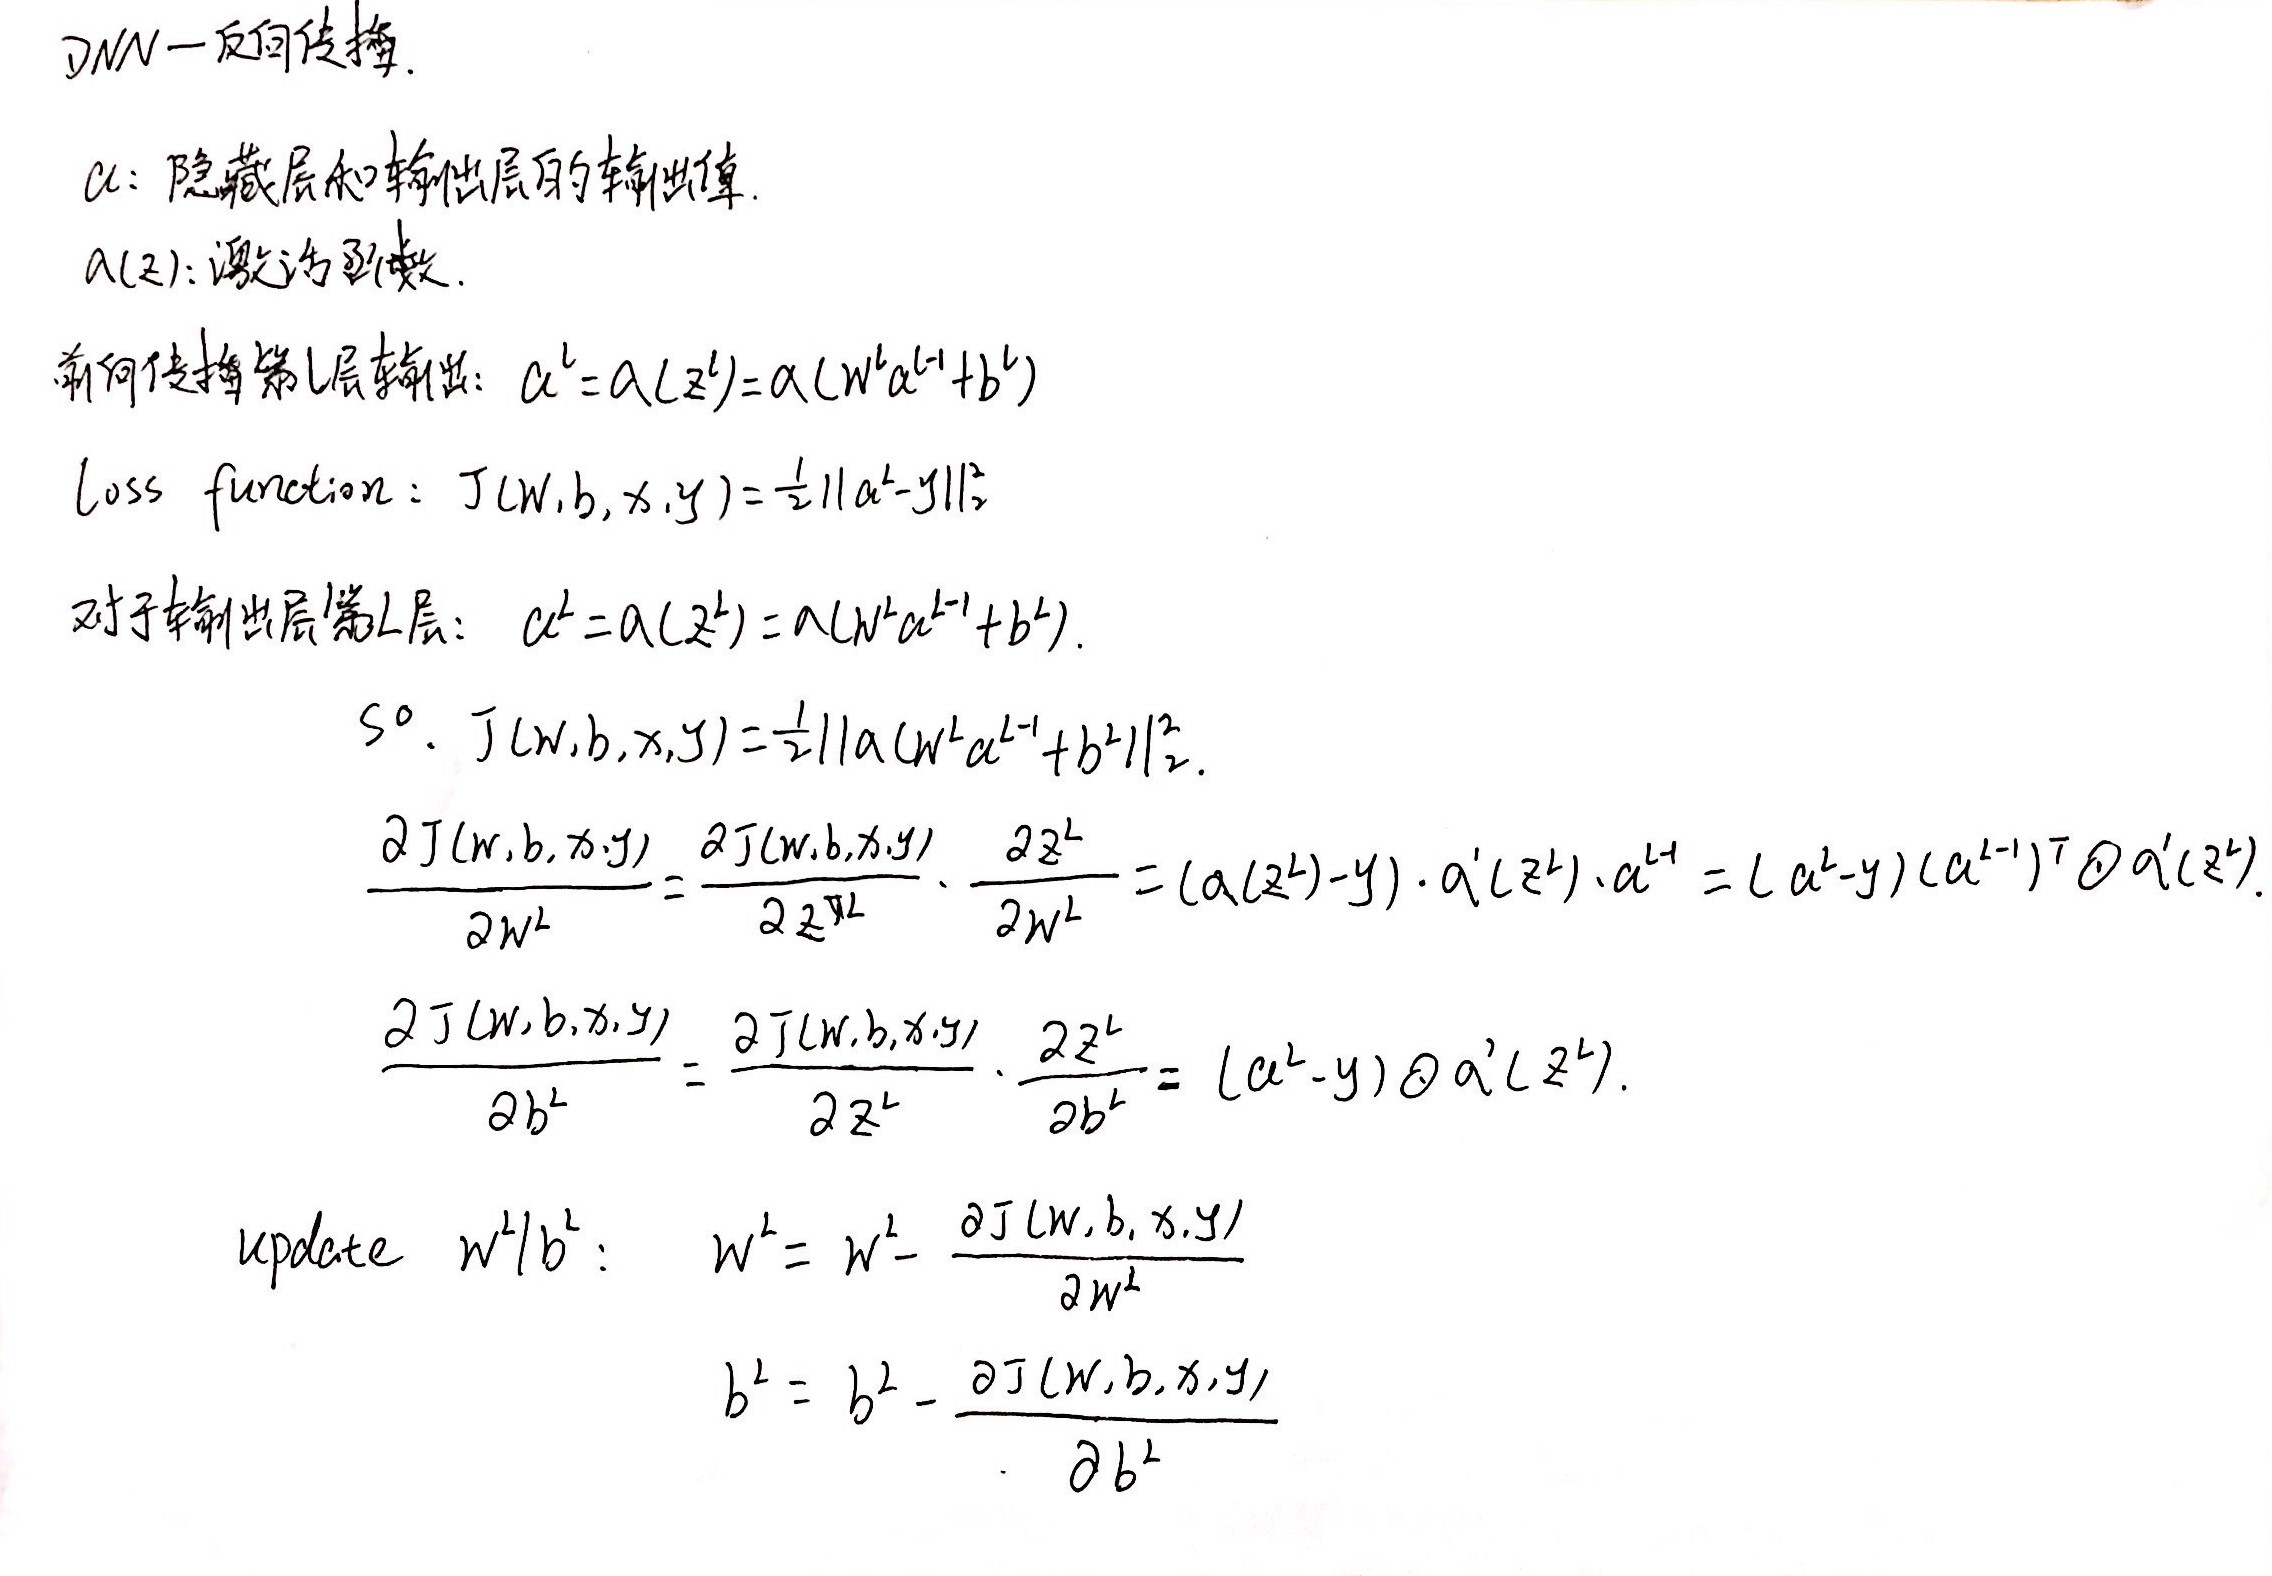 DNN — 反向传播.
a: 隐藏层和输出层的输出值.
a(z): 激活函数.
前向传播第l层输出: a^l = a(z^l) = a(W^l a^{l-1} + b^l)
Loss function: J(W, b, x, y) = 1/2 ||a^L - y||_2^2
对于输出层第L层: a^L = a(z^L) = a(W^L a^{L-1} + b^L).
So. J(W, b, x, y) = 1/2 ||a(W^L a^{L-1} + b^L)||_2^2.
∂J(W, b, x, y)/∂W^L = ∂J(W, b, x, y)/∂z^L · ∂z^L/∂W^L = (a(z^L) - y) · a'(z^L) · a^{L-1} = (a^L - y)(a^{L-1})^T ⊙ a'(z^L).
∂J(W, b, x, y)/∂b^L = ∂J(W, b, x, y)/∂z^L · ∂z^L/∂b^L = (a^L - y) ⊙ a'(z^L).
update W^L/b^L: W^L = W^L - ∂J(W, b, x, y)/∂W^L
b^L = b^L - ∂J(W, b, x, y)/∂b^L